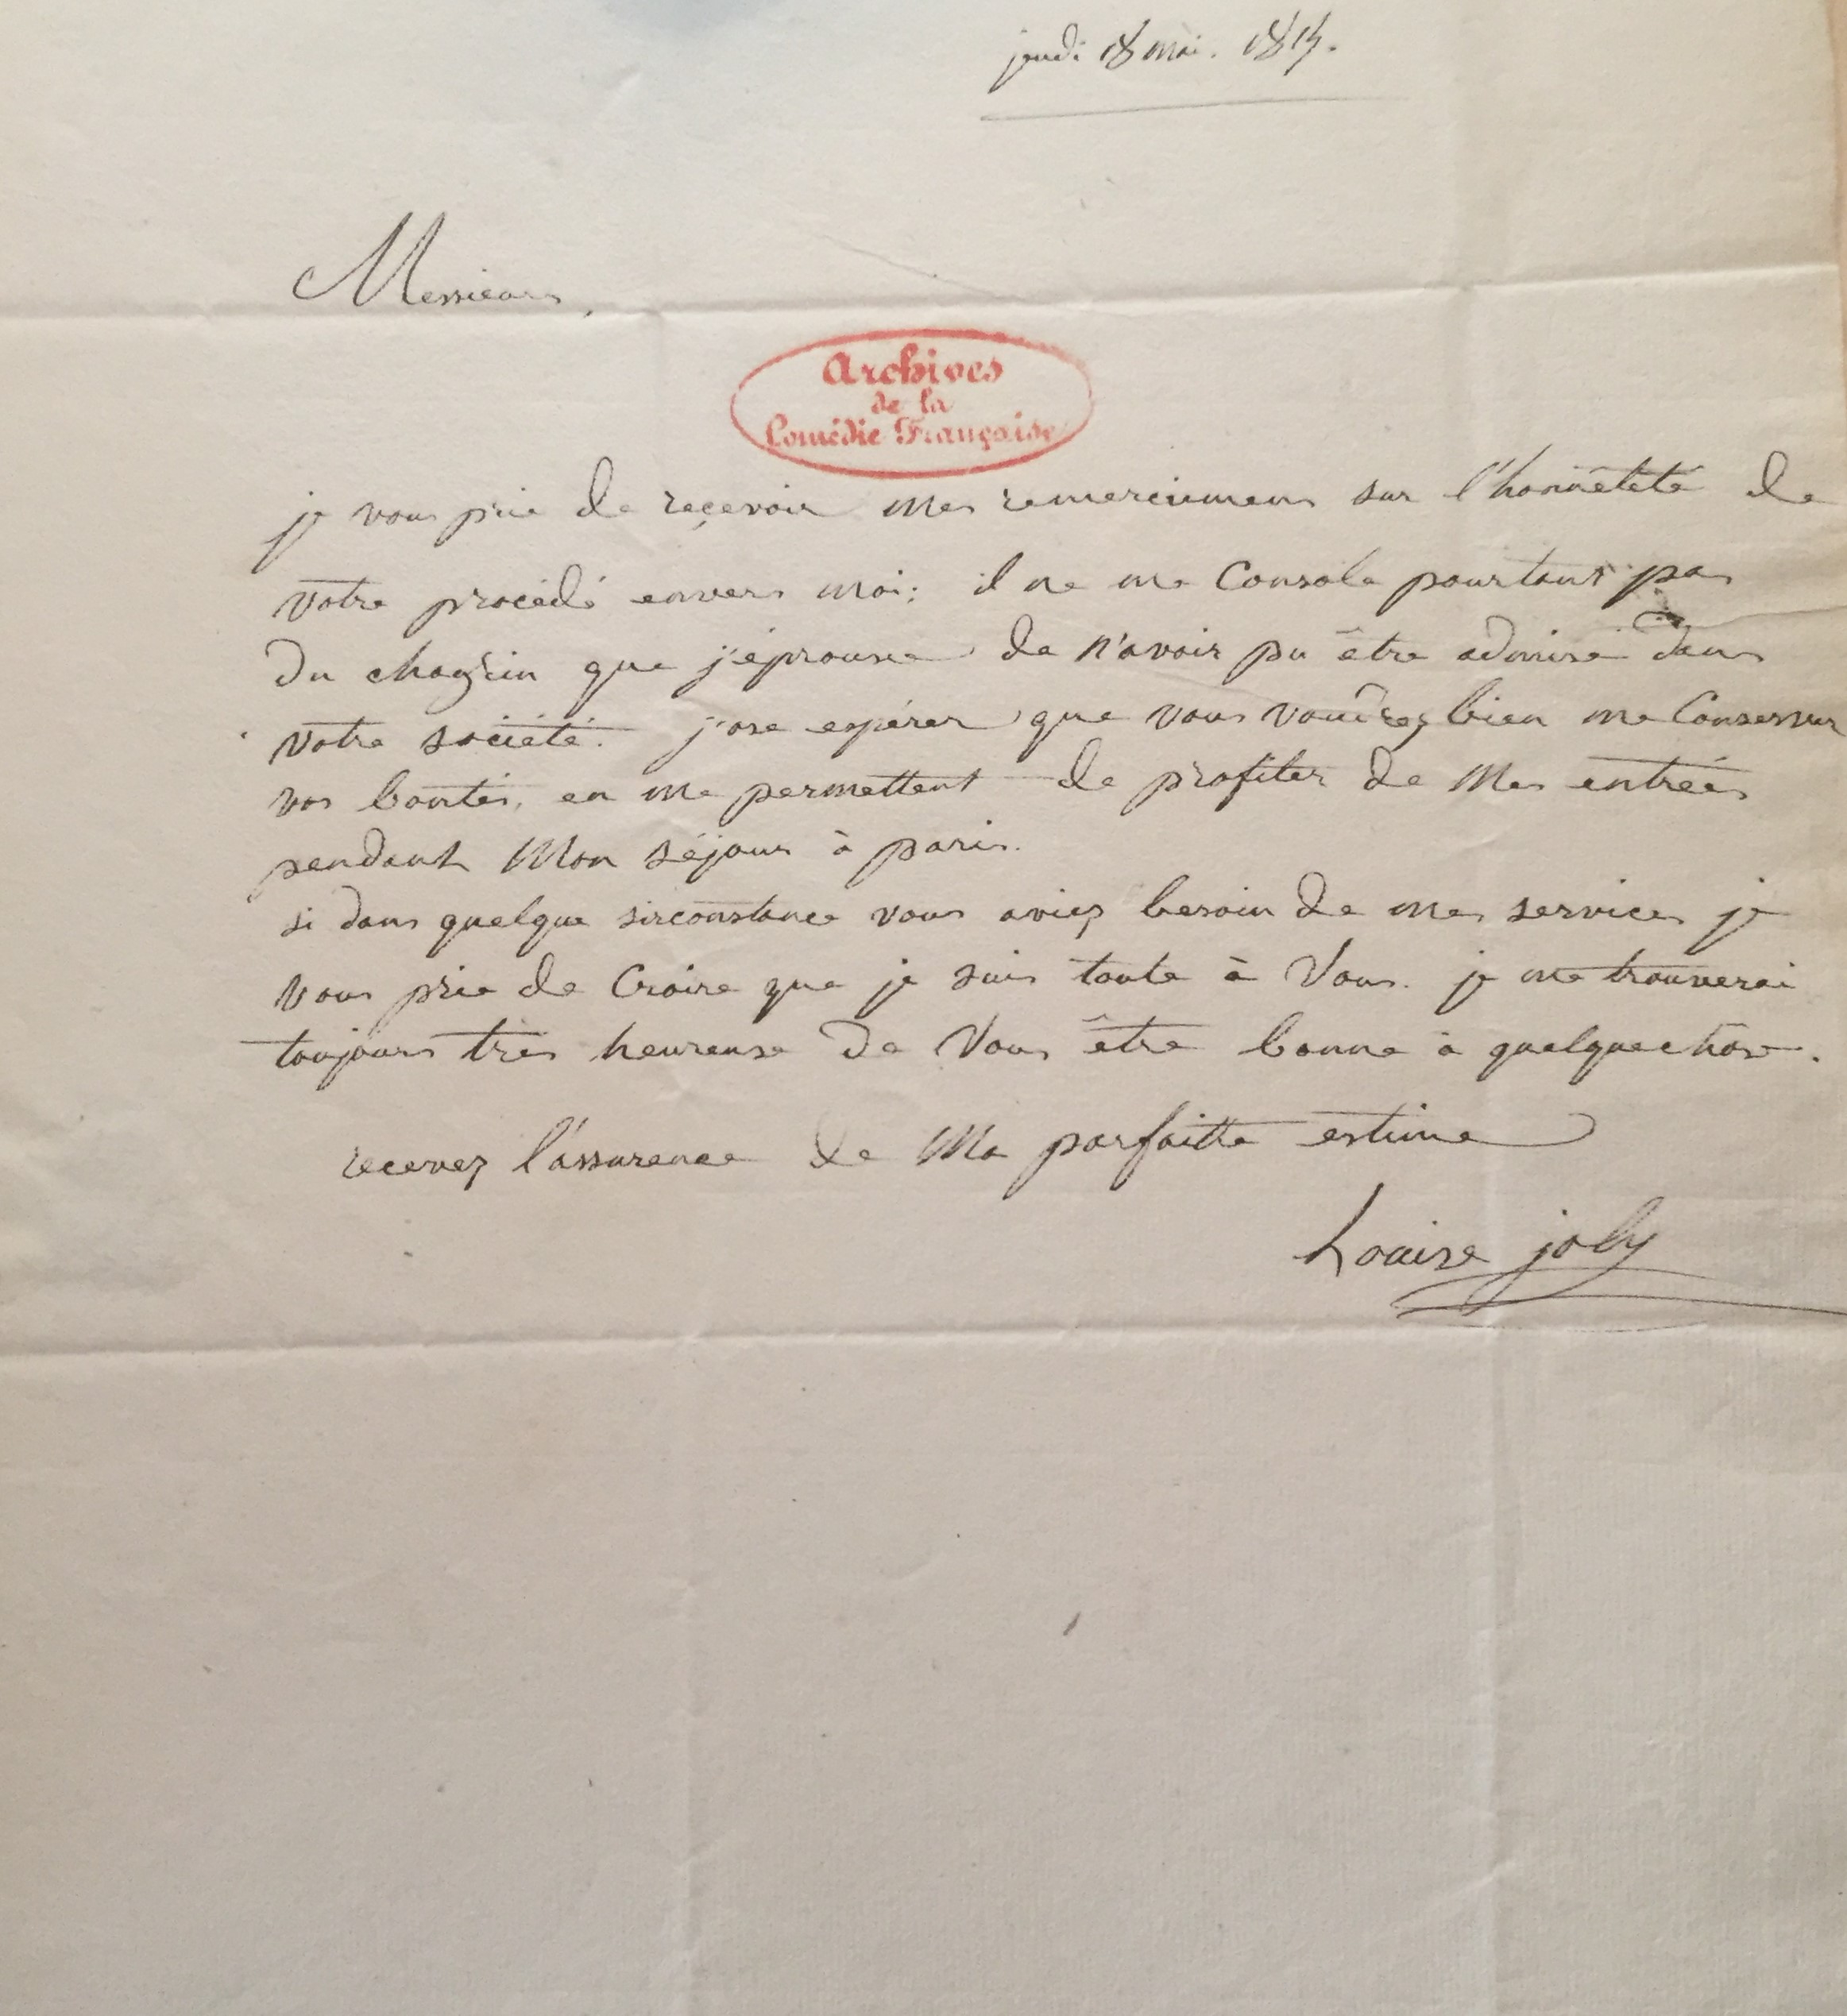 jeudi 18 mai. 1815.
Messieurs,
Archives
de la
Comédie Française
je vous prie de reçevoir mes remerciemens sur l'honnêteté de
votre procédé envers moi; il ne me Console pourtant pas
du chagrin que j'éprouve de n'avoir pu être admise dans
votre société. j'ose espérer que vous voudrez bien me Conserver
vos bontés, en me permettent de profiter de Mes entrées
pendant Mon séjour à paris.
si dans quelque sirconstance vous aviez besoin de mes services je
vous prie de Croire que je suis toute à Vous. je me trouverai
toujours très heureuse de Vous être bonne à quelquechose.
recevez l'assurence de Ma parfaitte estime
Louise joly